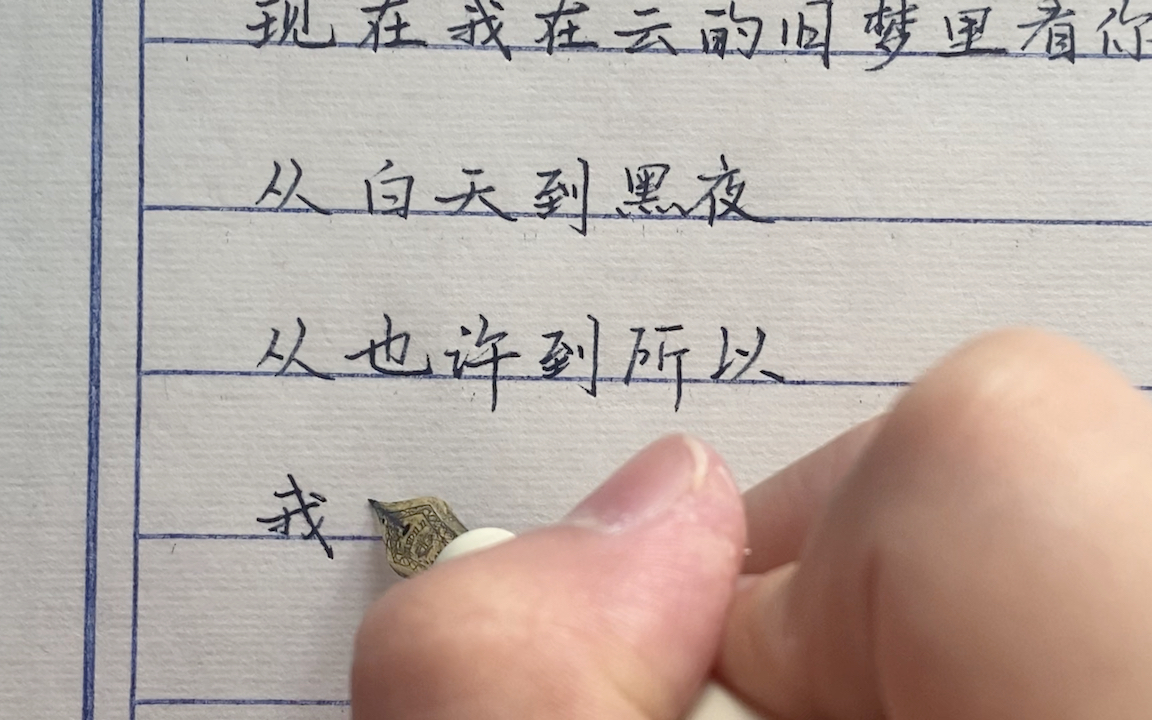 现在我在云的旧梦里看你
从白天到黑夜
从也许到所以
我